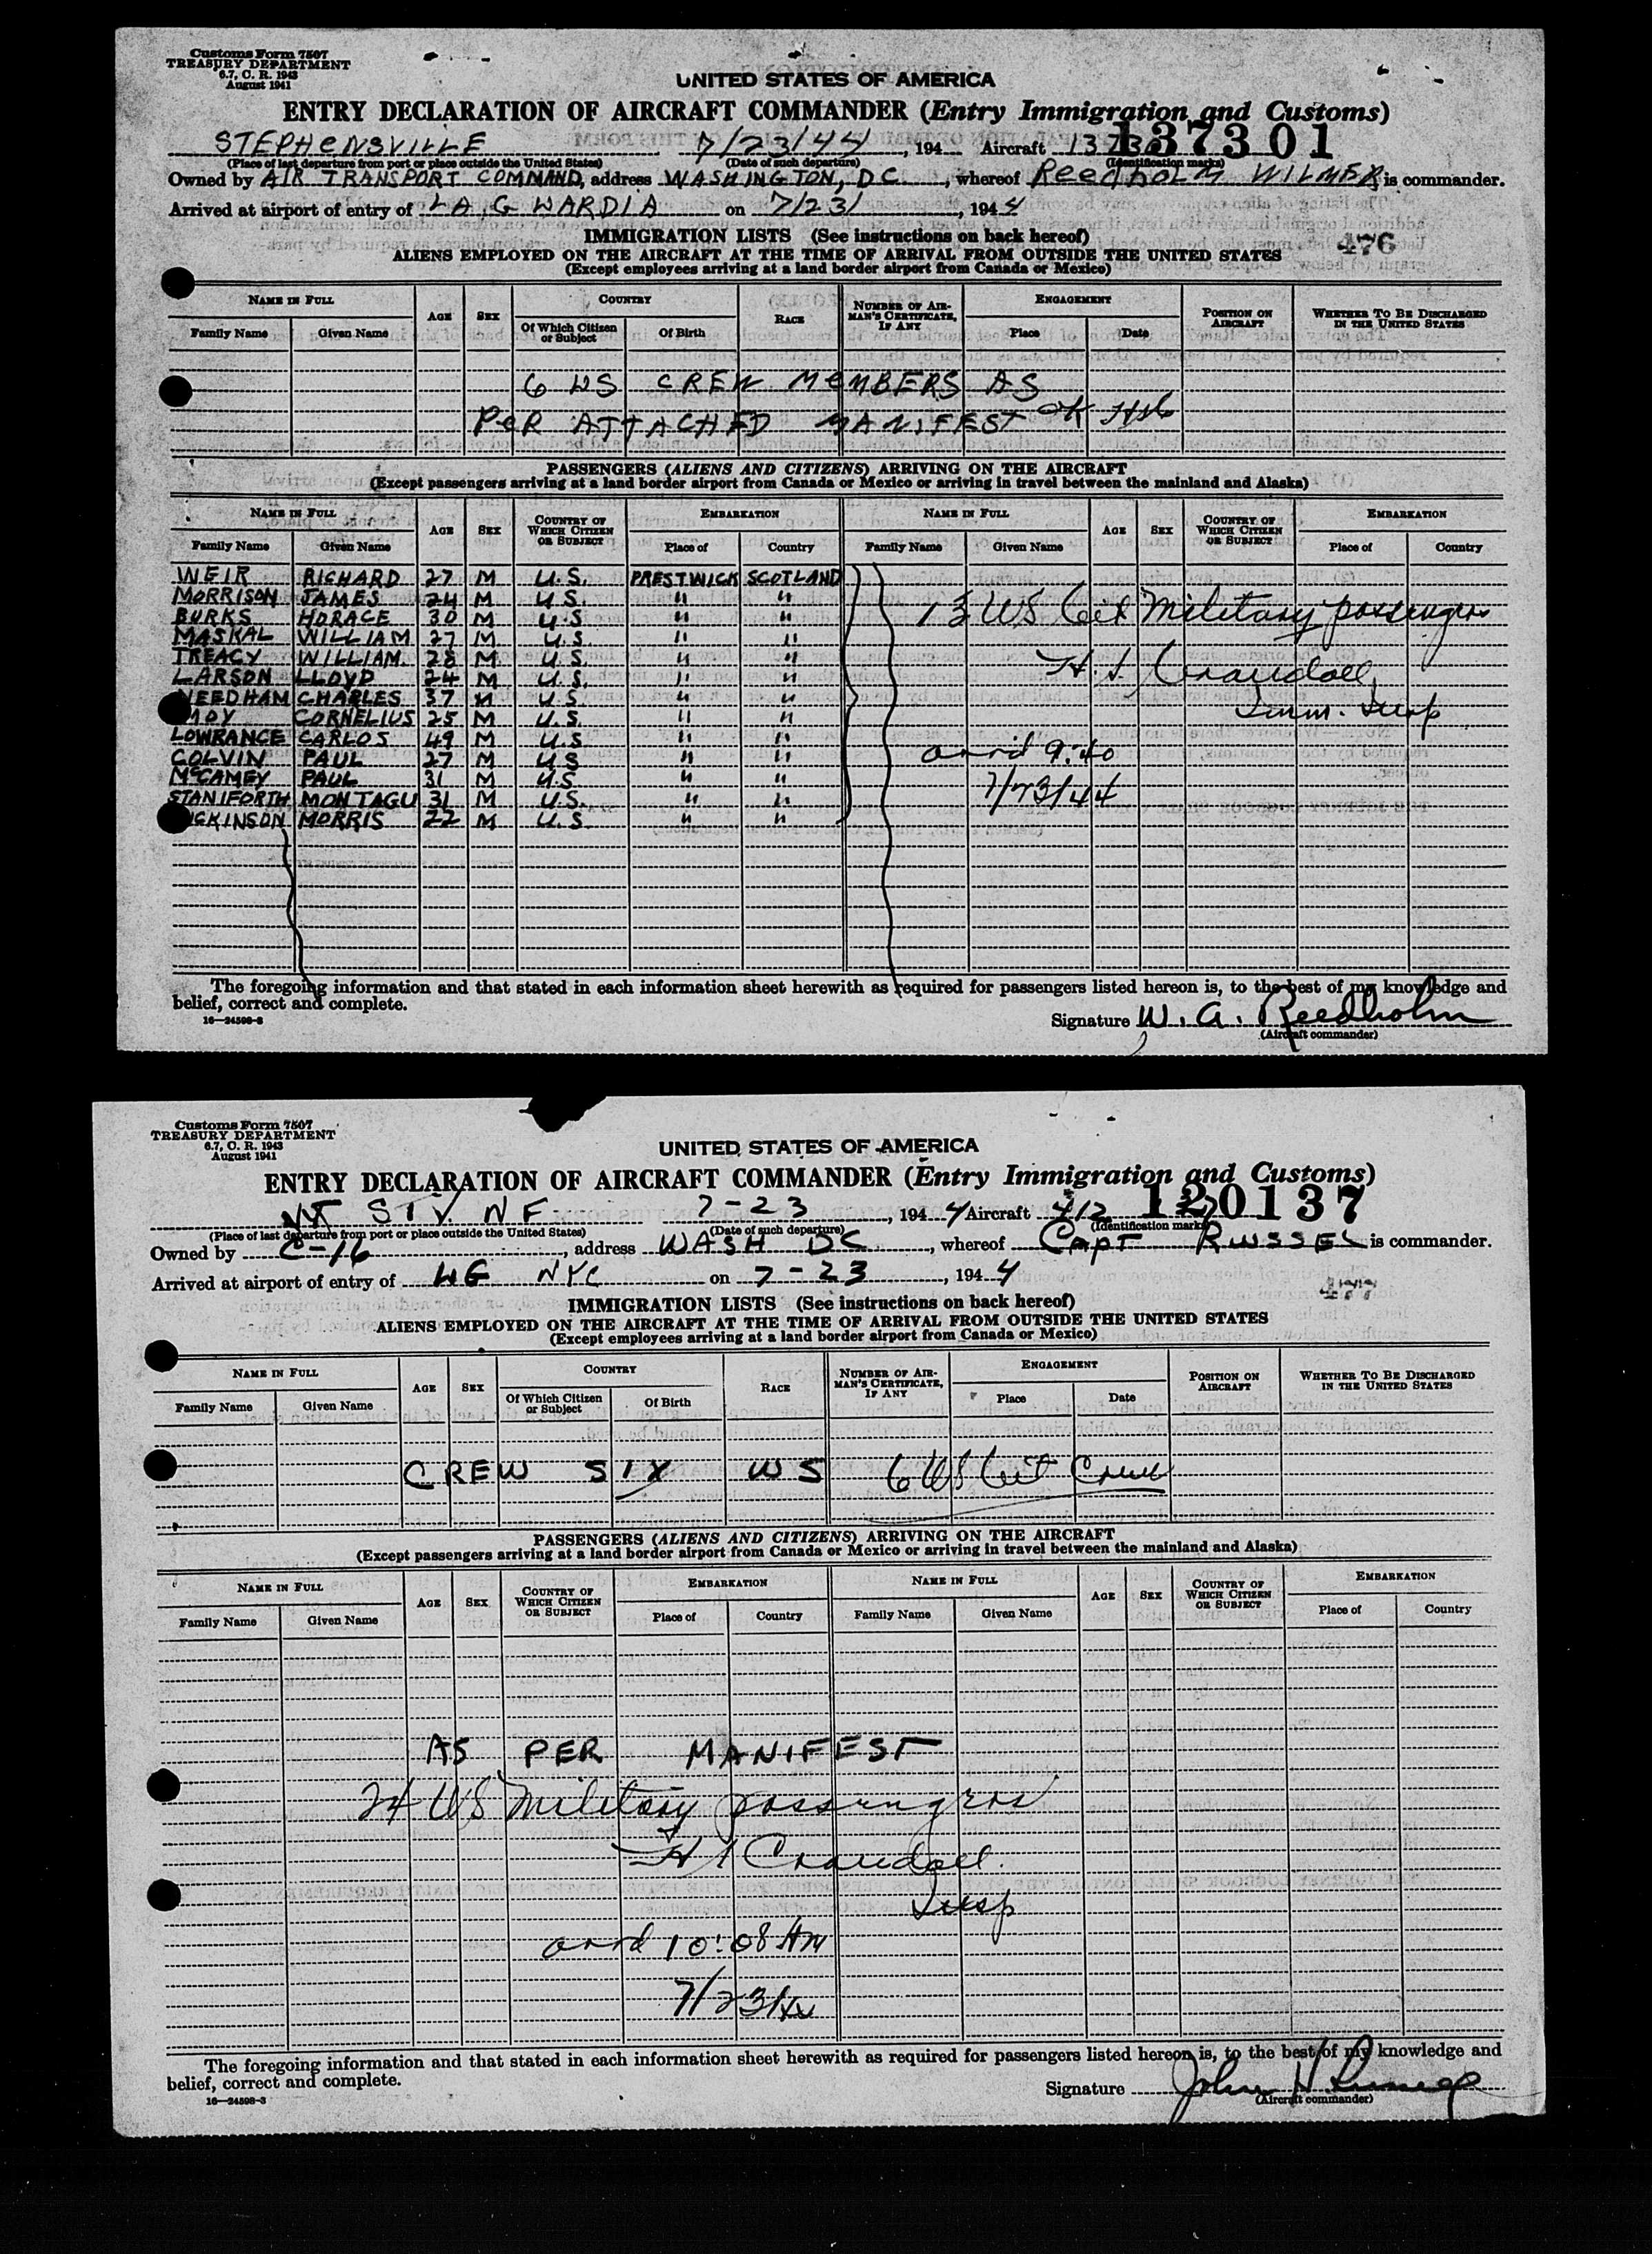 Customs Form 7507
TREASURY DEPARTMENT
6.7, C. R. 1943
August 1941
UNITED STATES OF AMERICA
ENTRY DECLARATION OF AIRCRAFT COMMANDER (Entry Immigration and Customs)
137301
STEPHENSVILLE 7/23/44, 194 Aircraft
(Place of last departure from port or place outside the United States) (Date of such departure) (Identification marks)
Owned by AIR TRANSPORT COMMAND, address WASHINGTON, DC, whereof REEDHOLM WILMER is commander.
Arrived at airport of entry of LA GWARDIA on 7/23/, 1944
IMMIGRATION LISTS (See instructions on back hereof)
476
ALIENS EMPLOYED ON THE AIRCRAFT AT THE TIME OF ARRIVAL FROM OUTSIDE THE UNITED STATES
(Except employees arriving at a land border airport from Canada or Mexico)
NAME IN FULL AGE SEX COUNTRY RACE NUMBER OF AIRMAN'S CERTIFICATE, IF ANY ENGAGEMENT POSITION ON AIRCRAFT WHETHER TO BE DISCHARGED IN THE UNITED STATES
Family Name Given Name Of Which Citizen or Subject Of Birth Place Date
6 US CREW MEMBERS AS
PER ATTACHED MANIFEST OK
PASSENGERS (ALIENS AND CITIZENS) ARRIVING ON THE AIRCRAFT
(Except passengers arriving at a land border airport from Canada or Mexico or arriving in travel between the mainland and Alaska)
NAME IN FULL AGE SEX COUNTRY OF WHICH CITIZEN OR SUBJECT EMBARKATION NAME IN FULL AGE SEX COUNTRY OF WHICH CITIZEN OR SUBJECT EMBARKATION
Family Name Given Name Place of Country Family Name Given Name Place of Country
WEIR RICHARD 27 M U.S. PRESTWICK SCOTLAND
MORRISON JAMES 24 M U.S. " "
BURKS HORACE 30 M U.S " "
13 US Cit Military passengers
MASKAL WILLIAM 27 M U.S. " "
TREACY WILLIAM. 28 M U.S. " "
LARSON LLOYD 24 M U.S. " "
H. J. Crandall
NEEDHAM CHARLES 37 M U.S. " "
CORNELIUS 25 M U.S. " "
Imm. Insp
LOWRANCE CARLOS 49 M U.S " "
COLVIN PAUL 27 M US " "
arrid 9:40
McCAMEY PAUL 31 M U.S. " "
STANIFORTH MONTAGU 31 M U.S. " "
7/23/44
ICKINSON MORRIS 22 M U.S. " "
The foregoing information and that stated in each information sheet herewith as required for passengers listed hereon is, to the best of my knowledge and
belief, correct and complete.
16—24598-3
Signature W. A. Reedholm
(Aircraft commander)
Customs Form 7507
TREASURY DEPARTMENT
6.7, C. R. 1943
August 1941
UNITED STATES OF AMERICA
ENTRY DECLARATION OF AIRCRAFT COMMANDER (Entry Immigration and Customs)
120137
STV. NF 7-23, 1944 Aircraft 412
(Place of last departure from port or place outside the United States) (Date of such departure) (Identification marks)
Owned by C-16, address WASH DC, whereof CAPT RUSSEL is commander.
Arrived at airport of entry of LG NYC on 7-23, 1944
477
IMMIGRATION LISTS (See instructions on back hereof)
ALIENS EMPLOYED ON THE AIRCRAFT AT THE TIME OF ARRIVAL FROM OUTSIDE THE UNITED STATES
(Except employees arriving at a land border airport from Canada or Mexico)
NAME IN FULL AGE SEX COUNTRY RACE NUMBER OF AIRMAN'S CERTIFICATE, IF ANY ENGAGEMENT POSITION ON AIRCRAFT WHETHER TO BE DISCHARGED IN THE UNITED STATES
Family Name Given Name Of Which Citizen or Subject Of Birth Place Date
CREW SIX US 6 US Cit Crew
PASSENGERS (ALIENS AND CITIZENS) ARRIVING ON THE AIRCRAFT
(Except passengers arriving at a land border airport from Canada or Mexico or arriving in travel between the mainland and Alaska)
NAME IN FULL AGE SEX COUNTRY OF WHICH CITIZEN OR SUBJECT EMBARKATION NAME IN FULL AGE SEX COUNTRY OF WHICH CITIZEN OR SUBJECT EMBARKATION
Family Name Given Name Place of Country Family Name Given Name Place of Country
AS PER MANIFEST
24 US Military passengers
H J Crandall.
Insp
arrd 10:08 Am
7/23/44
The foregoing information and that stated in each information sheet herewith as required for passengers listed hereon is, to the best of my knowledge and
belief, correct and complete.
16—24598-3
Signature John H
(Aircraft commander)